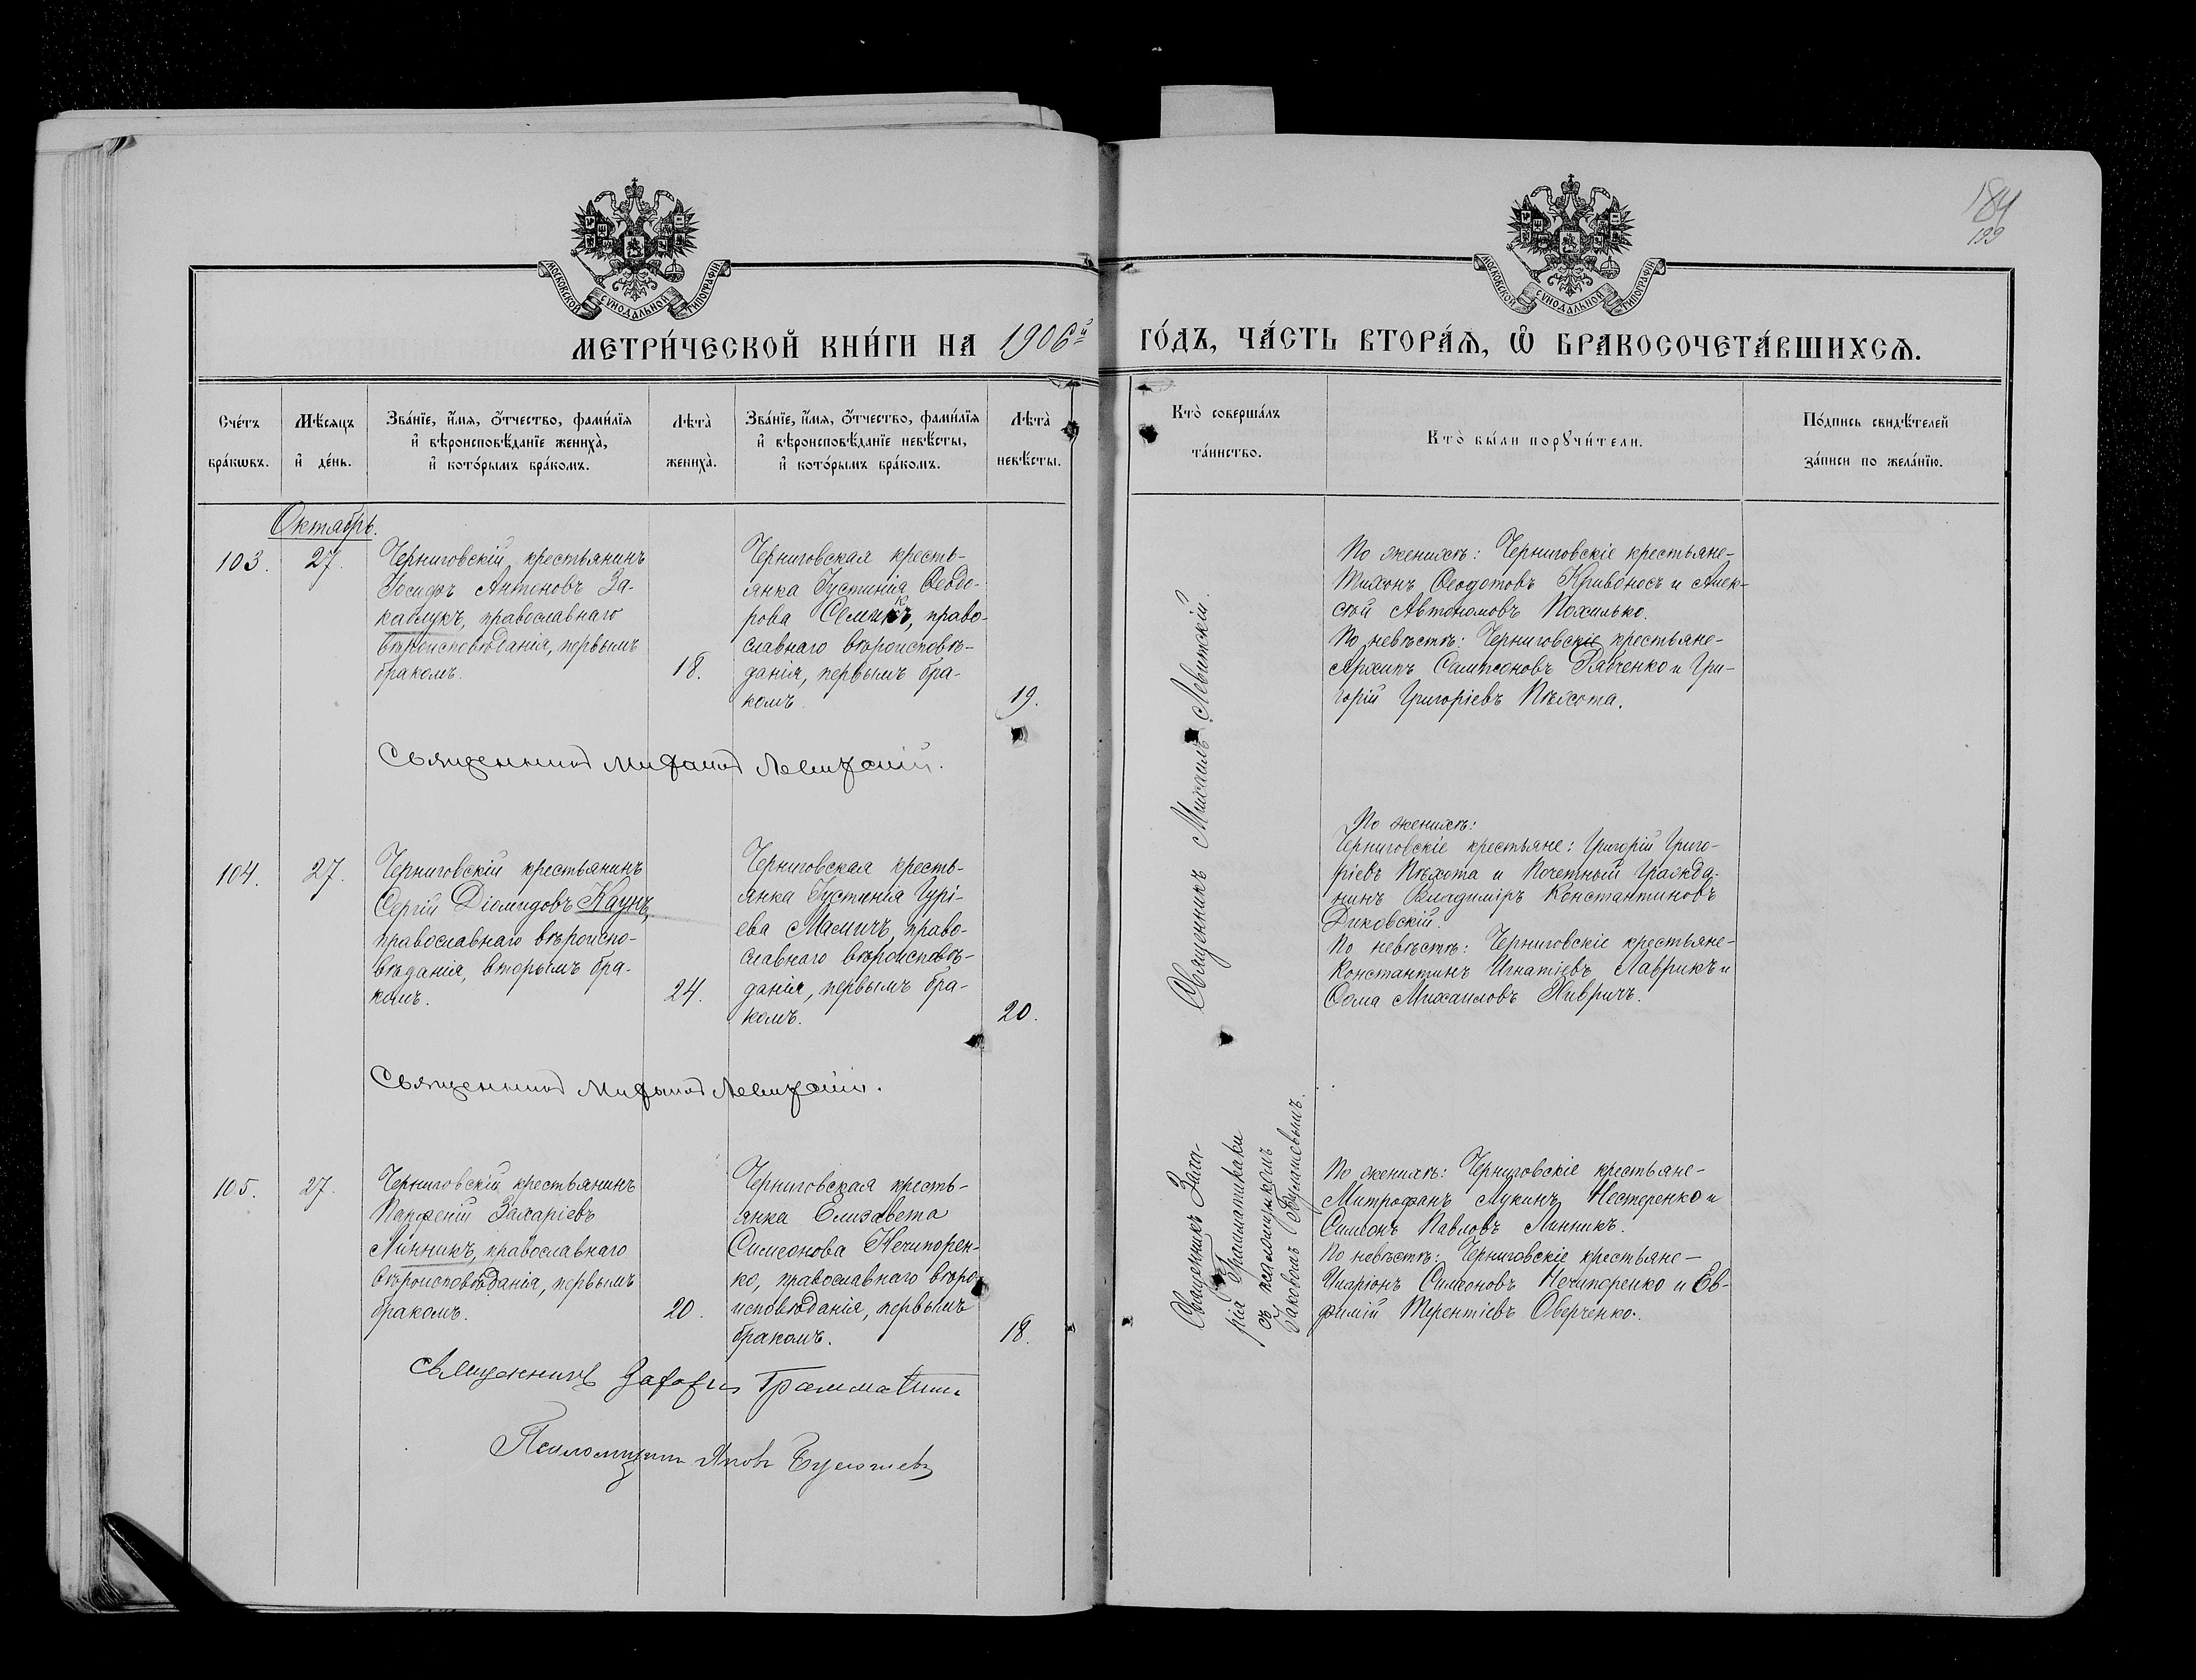 184
199
МОСКОВСКОЙ СѴНОДАЛЬНОЙ ТИПОГРАФІИ
МОСКОВСКОЙ СѴНОДАЛЬНОЙ ТИПОГРАФІИ
МЕТРИ́ЧЕСКОЙ КНИ́ГИ НА 1906й ГО́ДЪ, ЧА́СТЬ ВТОРА́Ѧ, Ѡ҆ БРАКОСОЧЕТА́ВШИХСѦ.
Сче́тъ
бра́кѡвъ.
Мѣ́сѧцъ
и҆ де́нь.
Зва́нїе, и҆́мѧ, ѻ҆́тчество, фами́лїѧ
и҆ вѣроисповѣ́данїе жениха̀,
и҆ кото́рымъ бра́комъ.
Лѣта̀
жениха̀.
Зва́нїе, и҆́мѧ, ѻ҆́тчество, фами́лїѧ
и҆ вѣроисповѣ́данїе невѣ́сты,
и҆ кото́рымъ бра́комъ.
Лѣта̀
невѣ́сты.
Кто̀ соверша́лъ
та́инство.
Кто̀ бы́ли порꙋчи́тели.
По́дпись свидѣ́телей
за́писи по жела́нїю.
Октябрь.
103.
27.
Черниговскій крестьянинъ
Іосифъ Антоновъ За-
каблукъ, православнаго
вѣроисповѣданія, первымъ
бракомъ.
18.
Черниговская кресть-
янка Іустинія Ѳеодо-
рова , право-
славнаго вѣроисповѣ-
данія, первымъ бра-
комъ.
19.
Священникъ Михаилъ Левитскій.
По женихѣ: Черниговскіе крестьяне-
Тихонъ Ѳеодотовъ Кривоносъ и Алек-
сѣй Автономовъ Похилько.
По невѣстѣ: Черниговскіе крестьяне-
Архипъ Сампсоновъ Рябченко и Гри-
горій Григоріевъ Пѣхота.
Священникъ Михаилъ Левитскій.
104.
27.
Черниговскій крестьянинъ
Сергій Діомидовъ Каунъ,
православнаго вѣроиспо-
вѣданія, вторымъ бра-
комъ.
24.
Черниговская кресть-
янка Іустинія Гурі-
ева Мамичъ, право-
славнаго вѣроисповѣ-
данія, первымъ бра-
комъ.
20.
По женихѣ:
Черниговскіе крестьяне: Григорій Григо-
ріевъ Пѣхота и Почетный Гражда-
нинъ Владиміръ Константиновъ
Диковскій.
По невѣстѣ: Черниговскіе крестьяне-
Константинъ Игнатіевъ Лаврикъ и
Ѳома Михаиловъ Хивричъ.
Священникъ Михаилъ Левитскій.
105.
27.
Черниговскій крестьянинъ
Парфеній Захаріевъ
Линникъ, православнаго
вѣроисповѣданія, первымъ
бракомъ.
20.
Черниговская кресть-
янка Елизавета
Симеонова Нечипорен-
ко, православнаго вѣро-
исповѣданія, первымъ
бракомъ.
18.
Священникъ Заха-
рія Грамматикаки
съ псаломщикомъ
Іаковомъ
По женихѣ: Черниговскіе крестьяне-
Митрофанъ Лукинъ Нестеренко и
Симеонъ Павловъ Линникъ.
По невѣстѣ: Черниговскіе крестьяне-
Иларіонъ Симеоновъ Нечипоренко и Ев-
фимій Терентіевъ Оверченко.
Священникъ Захарія
Псаломщикъ Яковъ